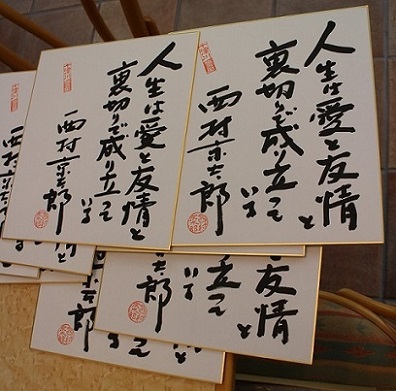 人生は愛と友情と
裏切りで成り立って
いる
西村京太郎
人生は愛と友情と
裏切りで成り立って
いる
西村京太郎
友情と
立って
いる
太郎